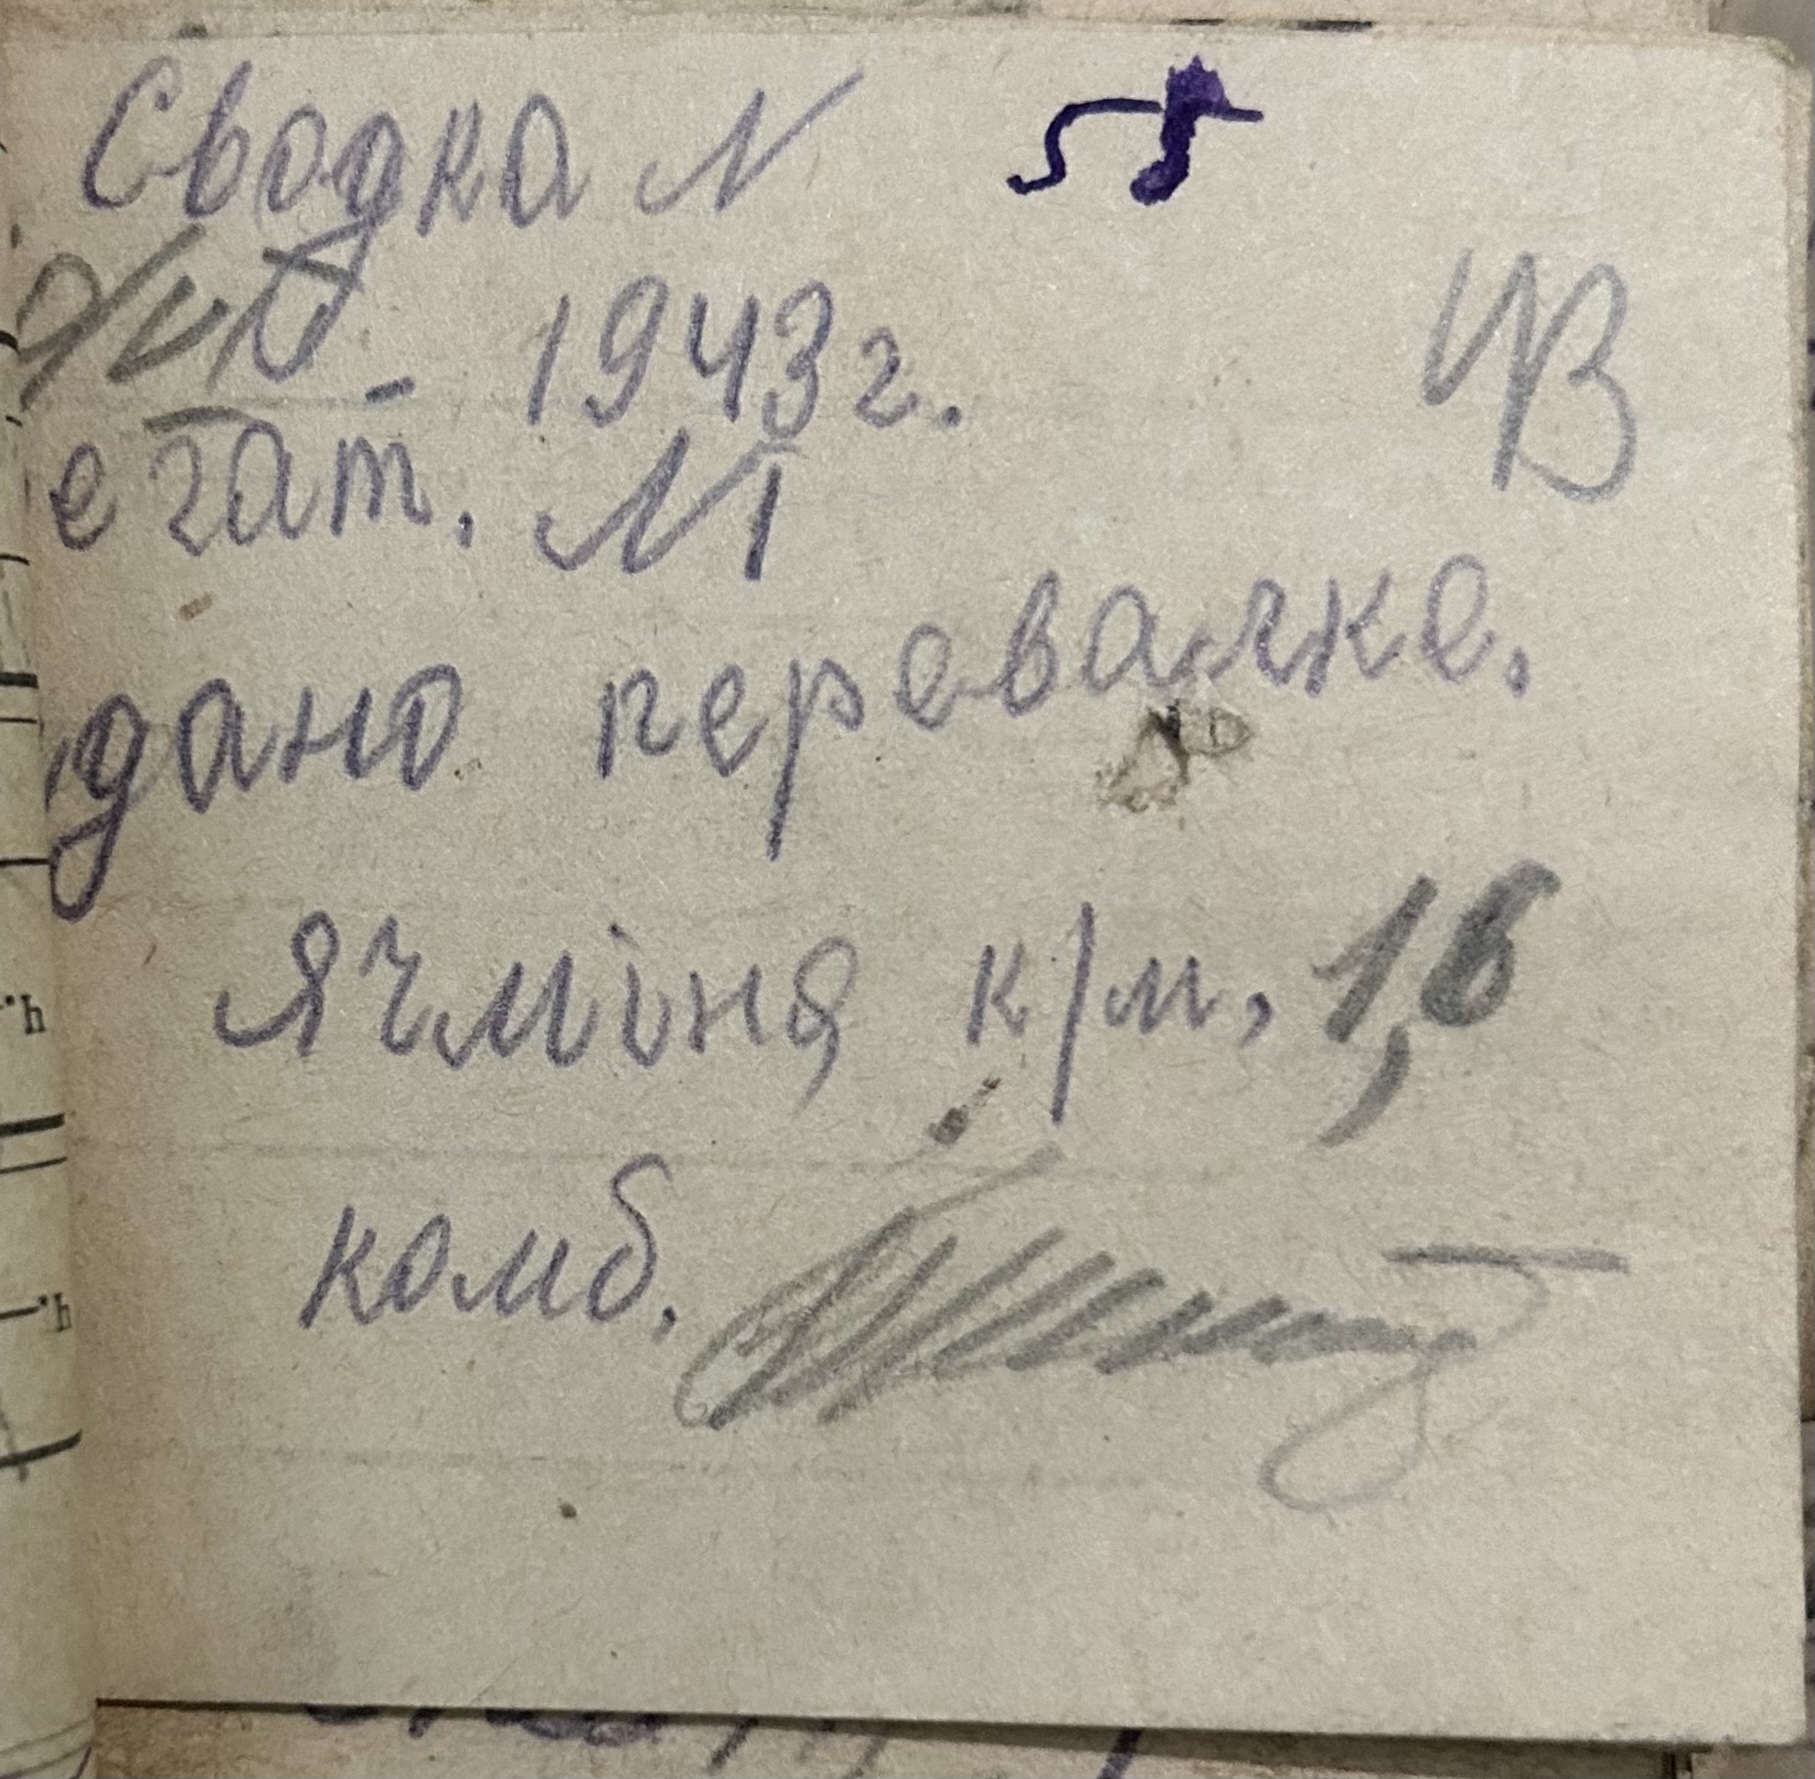 Сводка N 55
1943 г.
егат. N 1
дано перевалке.
ячміня к/м, 1,6
комб.